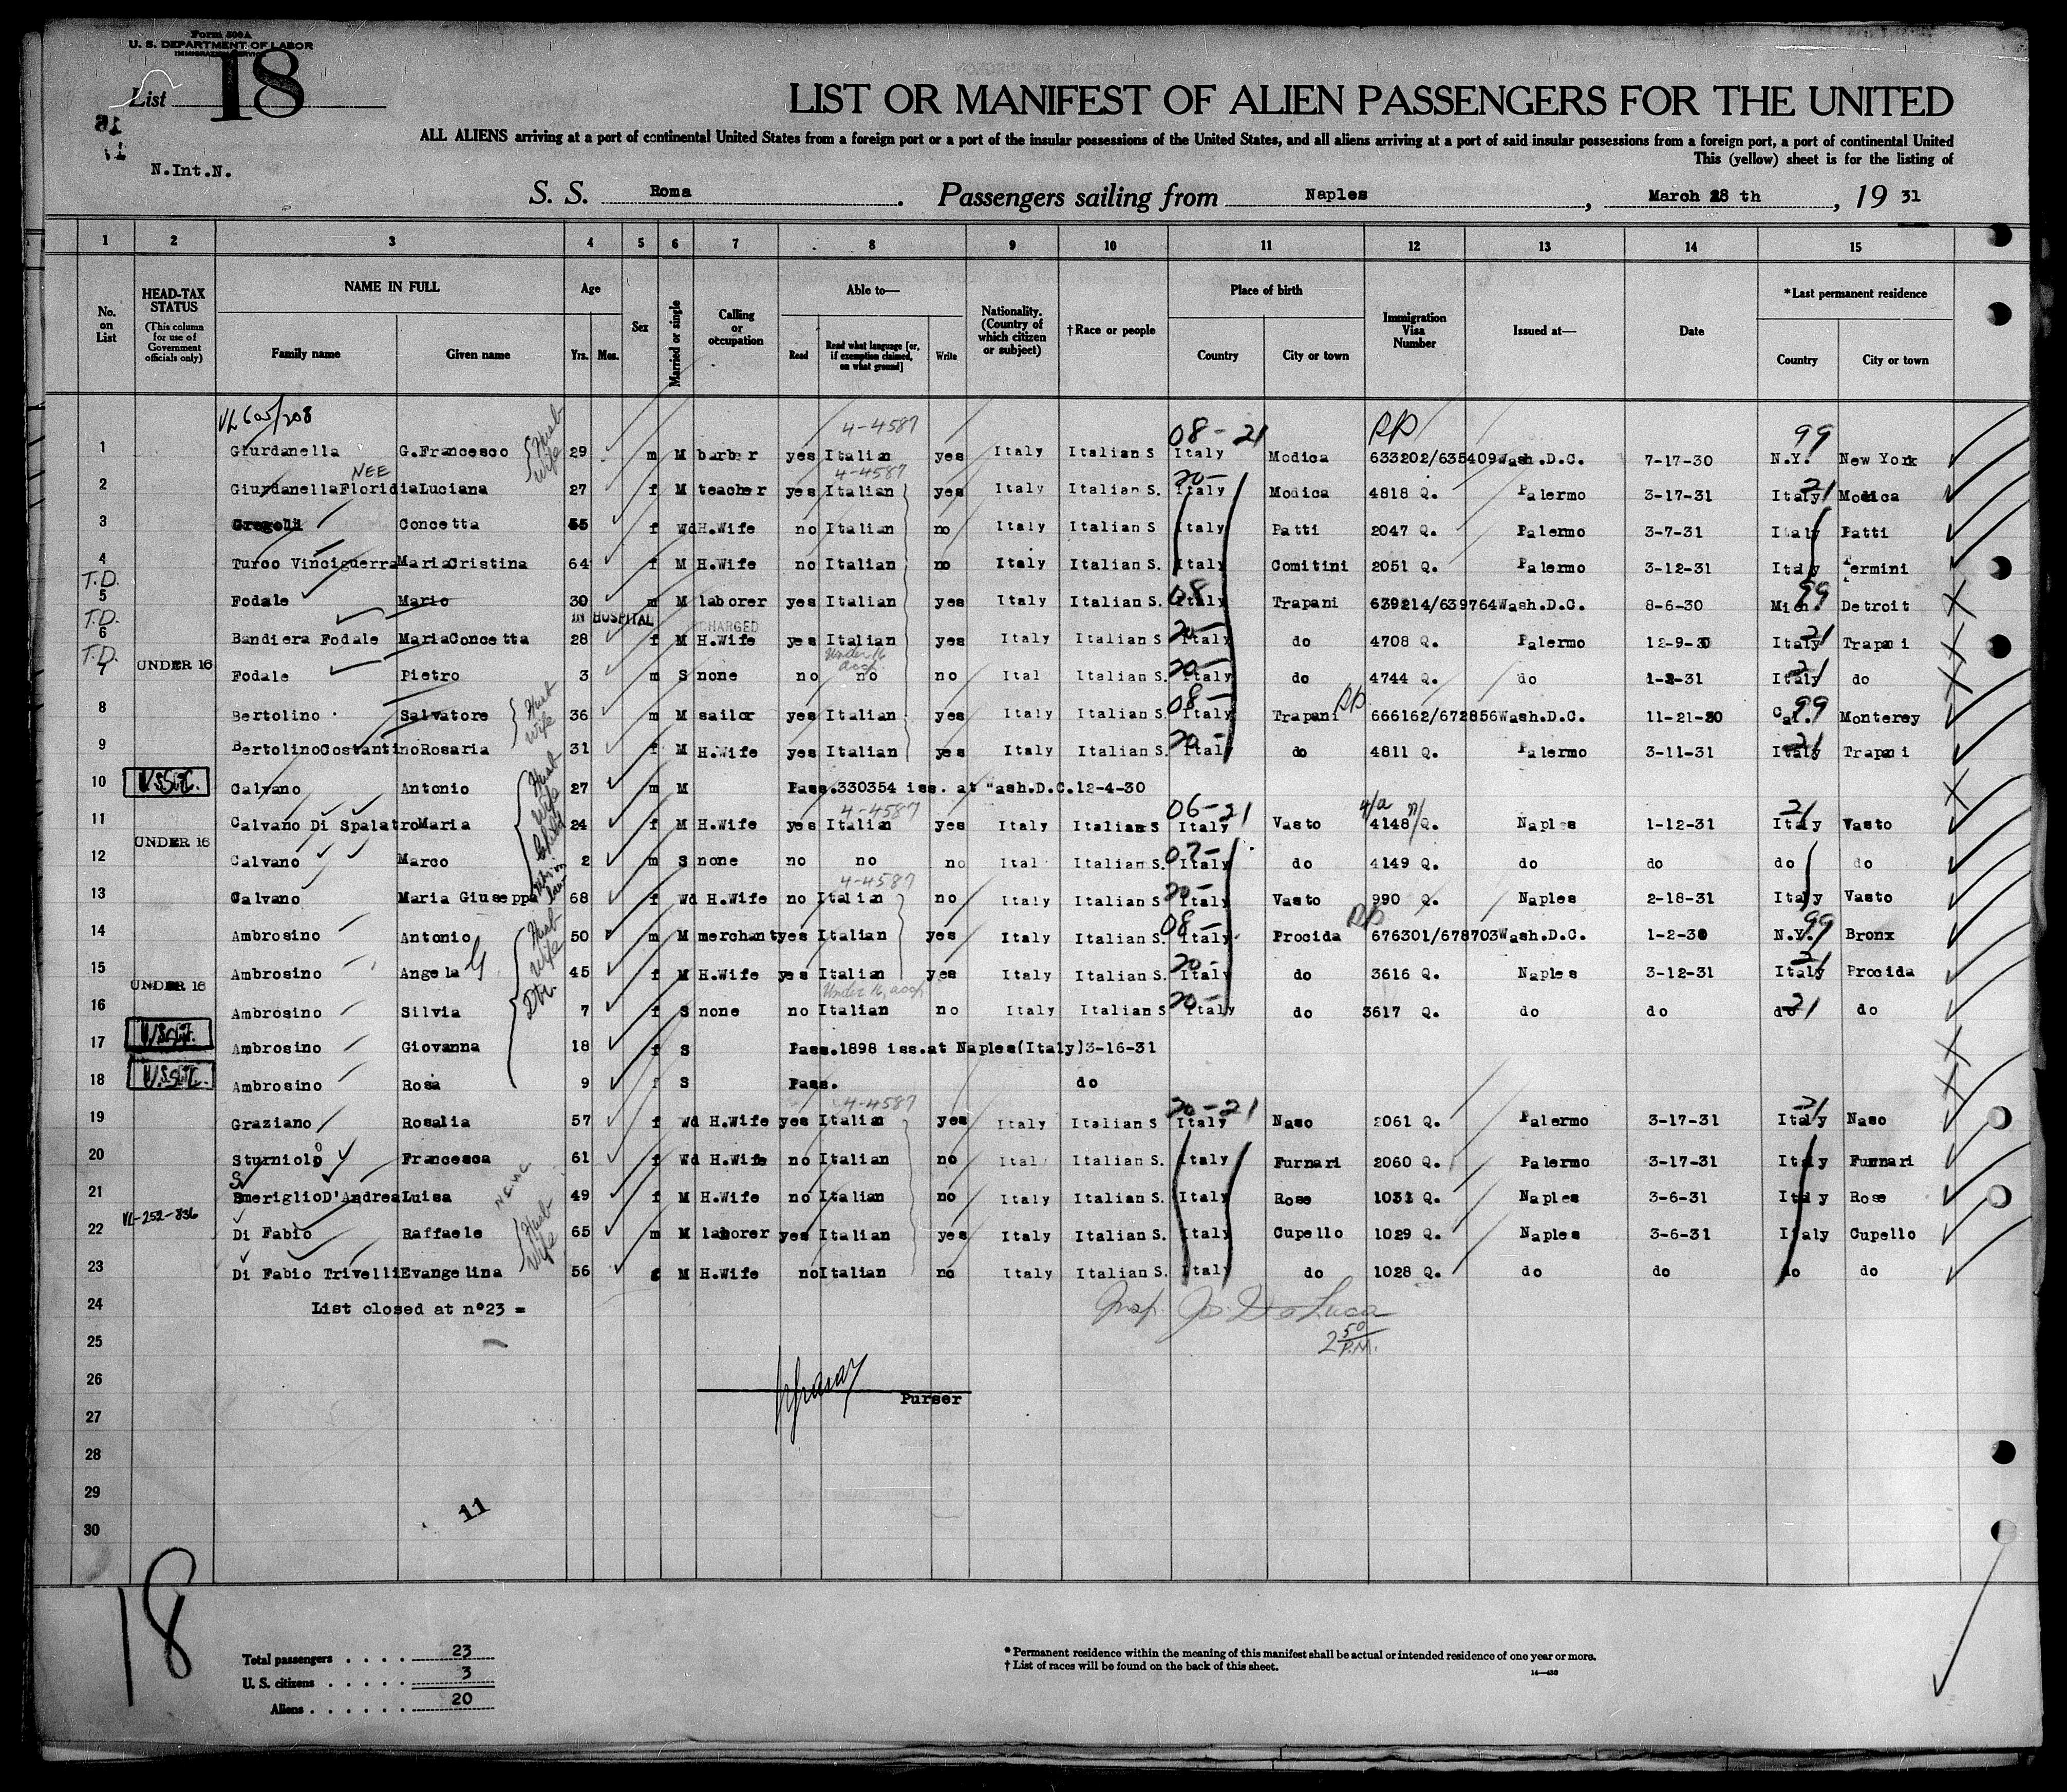 Form 500A
U. S. DEPARTMENT OF LABOR
IMMIGRATION SERVICE
List 18
LIST OR MANIFEST OF ALIEN PASSENGERS FOR THE UNITED
ALL ALIENS arriving at a port of continental United States from a foreign port or a port of the insular possessions of the United States, and all aliens arriving at a port of said insular possessions from a foreign port, a port of continental United
This (yellow) sheet is for the listing of
N.Int.N.
S. S. Roma . Passengers sailing from Naples , March 28 th , 19 31
1 2 3 4 5 6 7 8 9 10 11 12 13 14 15
No. on List
HEAD-TAX STATUS (This column for use of Government officials only)
NAME IN FULL
Family name Given name
Age
Yrs. Mos.
Sex
Married or single
Calling or occupation
Able to—
Read Read what language [or, if exemption claimed, on what ground] Write
Nationality. (Country of which citizen or subject)
†Race or people
Place of birth
Country City or town
Immigration Visa Number
Issued at—
Date
*Last permanent residence
Country City or town
VL 605/208 4-4587 08-21 99
1 Giurdanella G.Francesco Husb 29 m M barber yes Italian yes Italy Italian S Italy Modica 633202/635409 Wash.D.C. 7-17-30 N.Y. New York
NEE wife 4-4587 20- 21
2 Giurdanella Floridia Luciana 27 f M teacher yes Italian yes Italy Italian S. Italy Modica 4818 Q. Palermo 3-17-31 Italy Modica
3 Gregoli Concetta 55 f Wd H.Wife no Italian no Italy Italian S Italy Patti 2047 Q. Palermo 3-7-31 Italy Patti
4 Turco Vinciguerra MariaCristina 64 f M H.Wife no Italian no Italy Italian S. Italy Comitini 2051 Q. Palermo 3-12-31 Italy Termini
T.D. 08 99
5 Fodale Mario 30 m M laborer yes Italian yes Italy Italian S. Italy Trapani 639214/639764 Wash.D.C. 8-6-30 Mich. Detroit
T.D. IN HOSPITAL DISCHARGED 20- 21
6 Bandiera Fodale MariaConcetta 28 f M H.Wife yes Italian yes Italy Italian S Italy do 4708 Q. Palermo 12-9-30 Italy Trapani
T.D. UNDER 16 Under 16 accp. 20- 21
7 Fodale Pietro 3 m S none no no no Ital Italian S. Italy do 4744 Q. do 1-2-31 Italy do
08- 99
8 Bertolino Salvatore Husb 36 m M sailor yes Italian yes Italy Italian S. Italy Trapani 666162/672856 Wash.D.C. 11-21-30 Cal. Monterey
wife 20- 21
9 Bertolino Costantino Rosaria 31 f M H.Wife yes Italian yes Italy Italian S. Italy do 4811 Q. Palermo 3-11-31 Italy Trapani
10 Calvano Antonio Husb 27 m M Pass.330354 iss. at Wash.D.C.12-4-30
wife 4-4587 06-21 21
11 Calvano Di Spalatro Maria 24 f M H.Wife yes Italian yes Italy Italian S Italy Vasto 4148 Q. Naples 1-12-31 Italy Vasto
UNDER 16 07-
12 Calvano Marco 2 m S none no no no Ital Italian S. Italy do 4149 Q. do do do do
4-4587 20-
13 Calvano Maria Giuseppa 68 f Wd H.Wife no Italian no Italy Italian S Italy Vasto 990 Q. Naples 2-18-31 Italy Vasto
08- 99
14 Ambrosino Antonio Husb 50 m M merchant yes Italian yes Italy Italian S. Italy Procida 676301/678703 Wash.D.C. 1-2-30 N.Y. Bronx
wife 20- 21
15 Ambrosino Angela 45 f M H.Wife yes Italian yes Italy Italian S. Italy do 3616 Q. Naples 3-12-31 Italy Procida
UNDER 16 Under 16, accp. 20- 21
16 Ambrosino Silvia 7 f S none no Italian no Italy Italian S Italy do 3617 Q. do do do do
17 Ambrosino Giovanna 18 f S Pass.1898 iss.at Naples(Italy)3-16-31
18 Ambrosino Rosa 9 f S Pass. do
4-4587 20-21 21
19 Graziano Rosalia 57 f Wd H.Wife yes Italian yes Italy Italian S Italy Naso 2061 Q. Palermo 3-17-31 Italy Naso
20 Sturniolo Francesca 61 f Wd H.Wife no Italian no Italy Italian S. Italy Furnari 2060 Q. Palermo 3-17-31 Italy Furnari
21 Smeriglio D'Andrea Luisa 49 f M H.Wife no Italian no Italy Italian S. Italy Rose 1031 Q. Naples 3-6-31 Italy Rose
VL-252-836
22 Di Fabio Raffaele Husb 65 m M laborer yes Italian yes Italy Italian S. Italy Cupello 1029 Q. Naples 3-6-31 Italy Cupello
wife
23 Di Fabio Trivelli Evangelina 56 f M H.Wife no Italian no Italy Italian S. Italy do 1028 Q. do do do do
24 List closed at n°23 = Insp. De Luca
25 2 50 P.M.
26
Purser
27
28
29
11
30
18
Total passengers 23
U. S. citizens 3
Aliens 20
* Permanent residence within the meaning of this manifest shall be actual or intended residence of one year or more.
† List of races will be found on the back of this sheet.
14—430